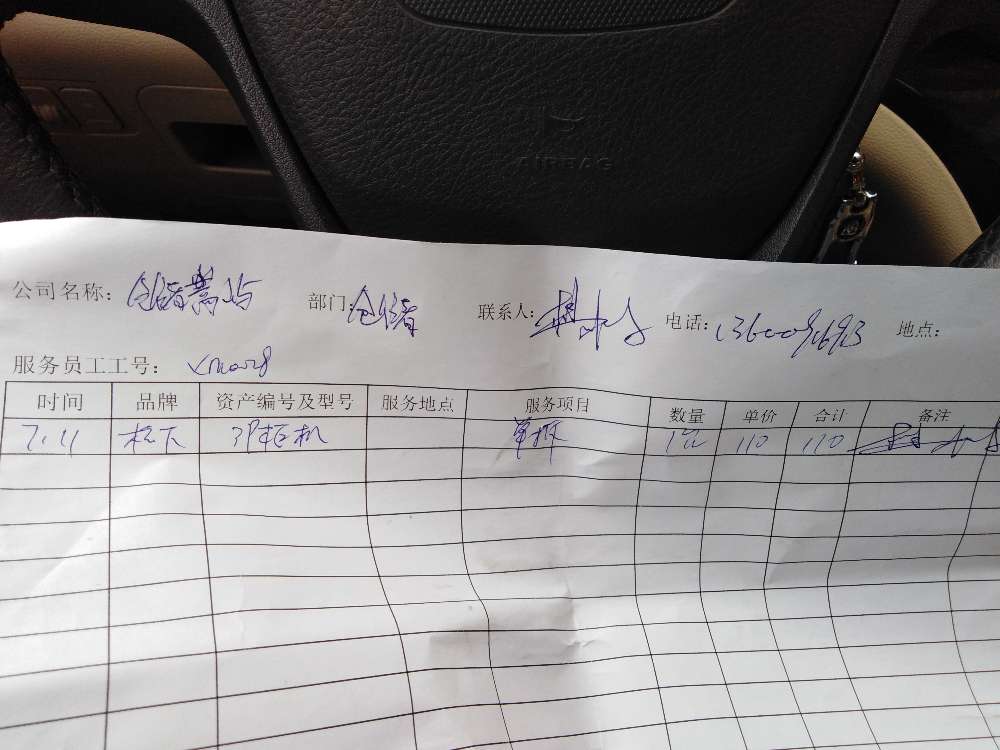 AIRBAG
公司名称: 仓储嵩屿 部门: 仓储 联系人: 电话: 地点:
服务员工工号:
时间 品牌 资产编号及型号 服务地点 服务项目 数量 单价 合计 备注
7.11 松下 3P柜机 单拆 1台 110 110